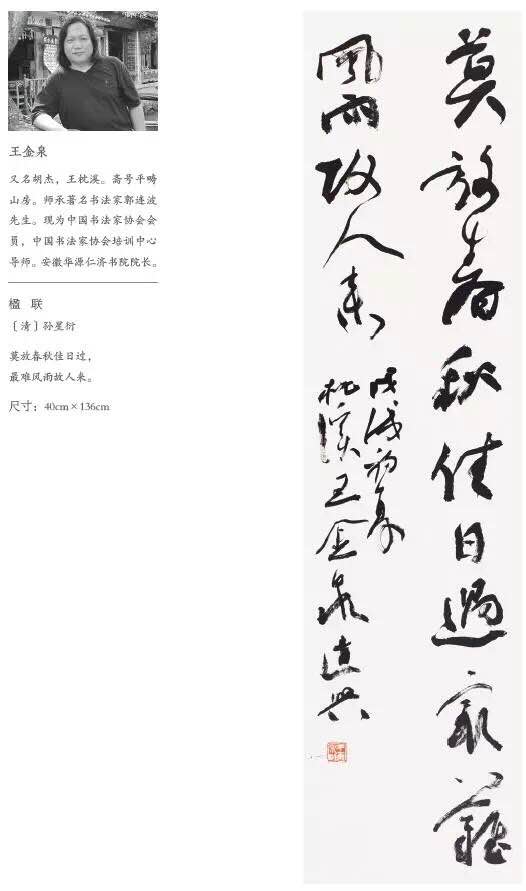 王金泉
又名胡杰，王枕溪。斋号平畴
山房。师承著名书法家郭连波
先生。现为中国书法家协会会
员，中国书法家协会培训中心
导师。安徽华源仁济书院院长。
楹 联
［清］孙星衍
莫放春秋佳日过，
最难风雨故人来。
尺寸：40cm×136cm
莫放春秋佳日過最難
風雨故人来
戊戌初夏
枕溪王金泉遣興